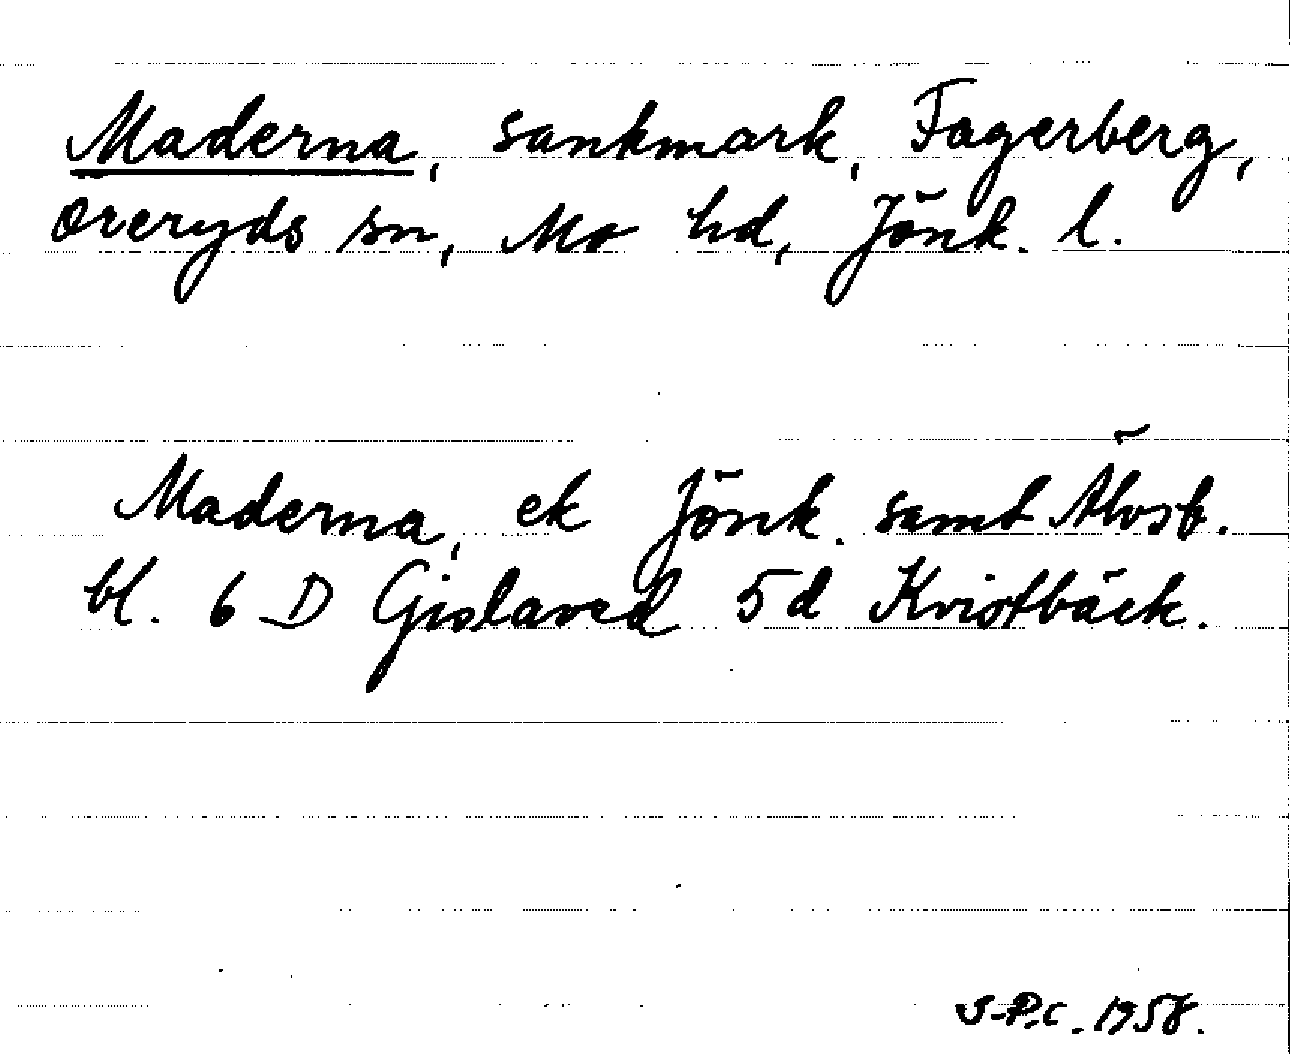 Maderna, sankmark, Fagerberg,
Öreryds sn, Mo hd, Jönk. l.
Maderna, ek Jönk. samt Älvsb.
bl. 6 D Gislaved 5d Kvistbäck.
S-P.C. 1958.